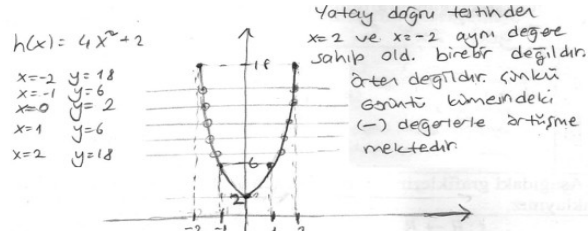 h(x) = 4x²+2
x=-2 y=18
x=-1 y=6
x=0 y=2
x=1 y=6
x=2 y=18
Yatay doğru testinden
x=2 ve x=-2 aynı değere
sahip old. birebir değildir.
örten değildir. çünkü
Görüntü kümesindeki
(-) değerlerle örtüşme
mektedir.
18
6
2
-2 -1 1 2